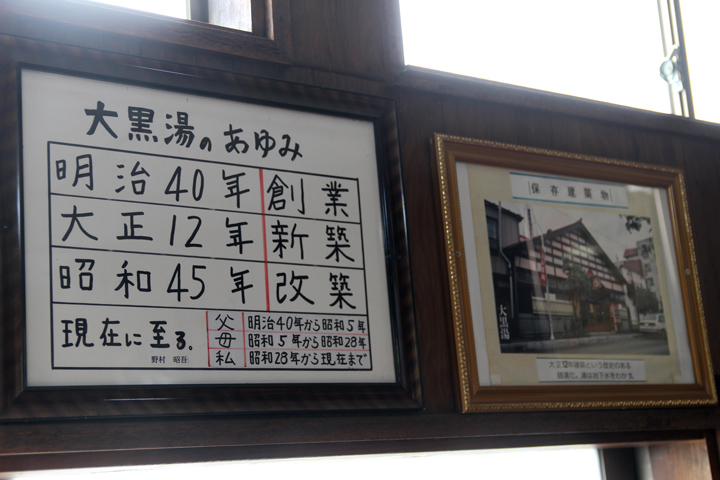 大黒湯のあゆみ
明治40年 創業
大正12年 新築
昭和45年 改築
現在に至る。
野村 昭吾
父 明治40年から昭和5年
母 昭和5年から昭和28年
私 昭和28年から現在まで
保存建築物
大黒湯
大正12年建築という歴史のある